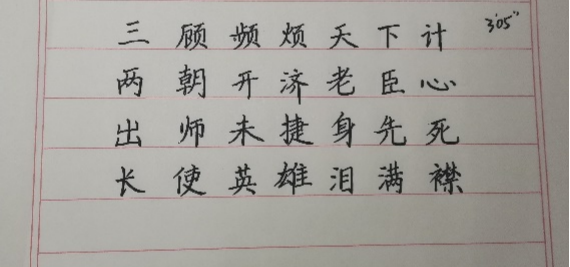 三顾频烦天下计 3'05"
两朝开济老臣心
出师未捷身先死
长使英雄泪满襟